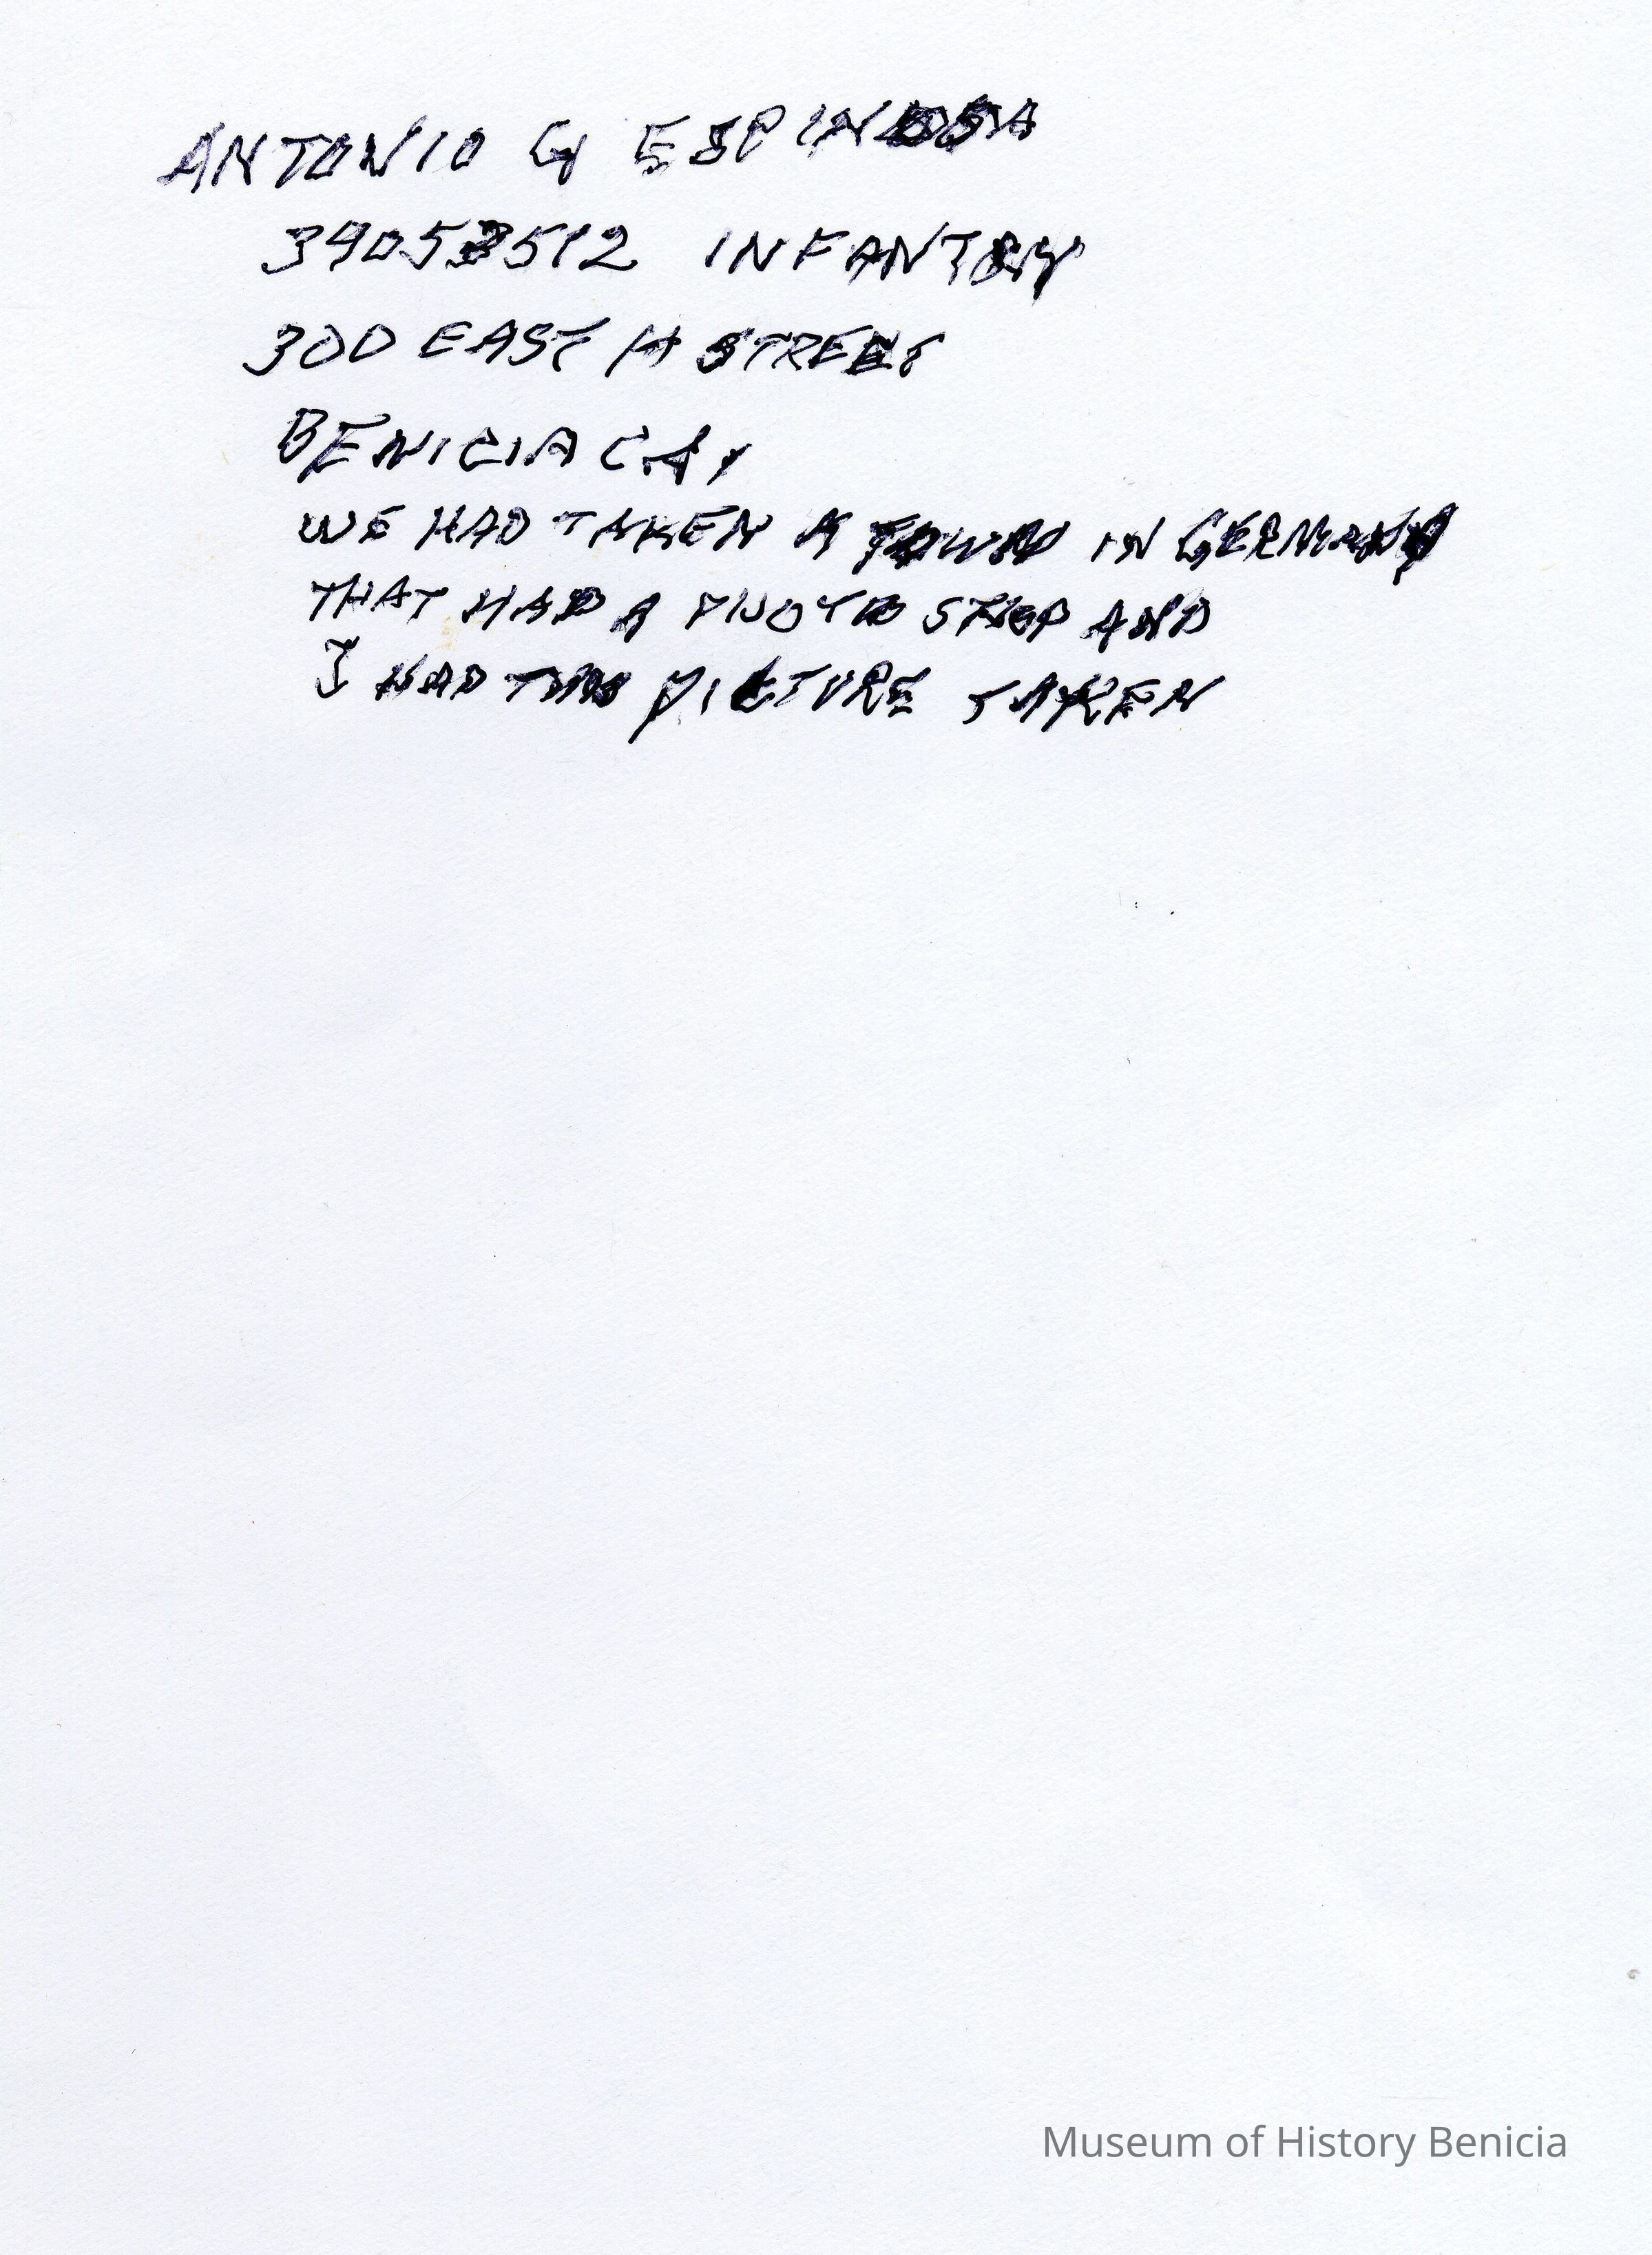 ANTONIO G ESPINOSA
39053512 INFANTRY
300 EAST H STREET
BENICIA CA,
WE HAD TAKEN A TOWN IN GERMANY
THAT HAD A PHOTO SHOP AND
I HAD THIS PICTURE TAKEN
Museum of History Benicia